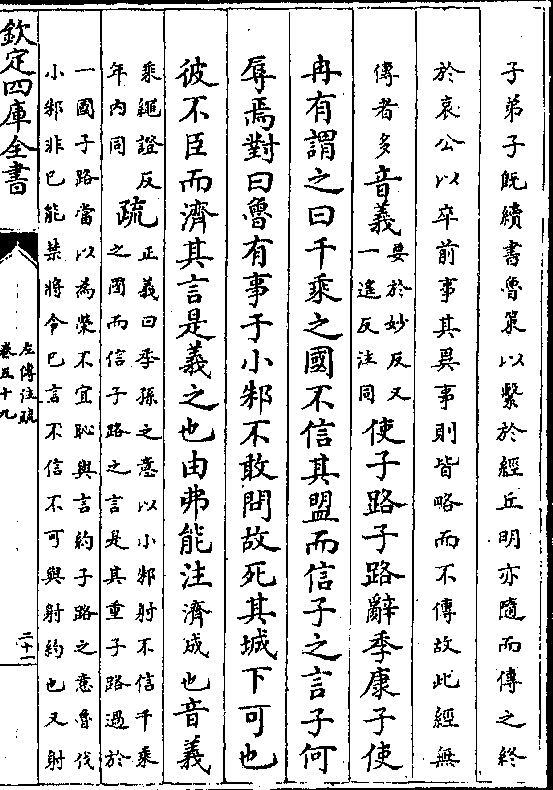 子弟子既續書魯策以繫於經丘明亦隨而傳之終
於哀公以卒前事其異事則皆略而不傳故此經無
傳者多音義要於妙反又
一遙反注同使子路子路辭季康子使
冉有謂之曰千乘之國不信其盟而信子之言子何
辱焉對曰魯有事于小邾不敢問故死其城下可也
彼不臣而濟其言是義之也由弗能注濟成也音義
乘繩證反
年內同疏正義曰季孫之意以小邾射不信千乘
之國而信子路之言是其重子路過於
一國子路當以為榮不宜恥與言約子路之意魯伐
小邾非己能禁將令己言不信不可與射約也又射
欽定四庫全書
左傳注疏
卷五十九
二十一